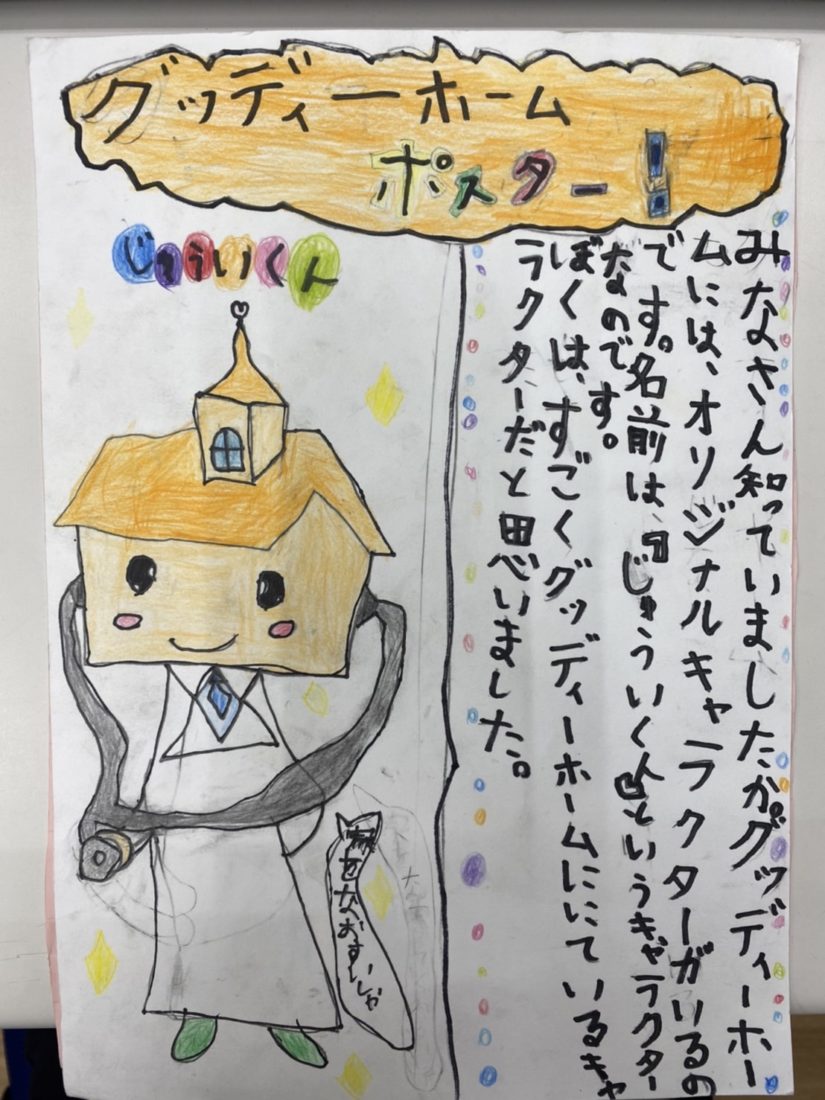 グッディーホーム
ポスター！
じゅういくん
みなさん知っていましたか。グッディーホー
ムには、オリジナルキャラクターがいるの
です。名前は、『じゅういくん』というキャラクター
なのです。
ぼくは、すごくグッディーホームににているキャ
ラクターだと思いました。
をなおすいしゃ